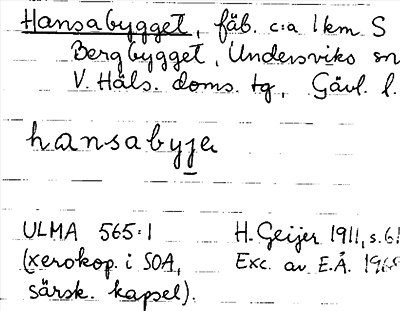 Hansabygget, fäb. c:a 1 km S
Bergbygget, Undersviks sn
V. Häls. doms. tg, Gävl. l.
hansabyja
ULMA 565:1
(xerokop. i SOA,
särsk. kapsel).
H. Geijer 1911, s. 61
Exc. av E.Å.